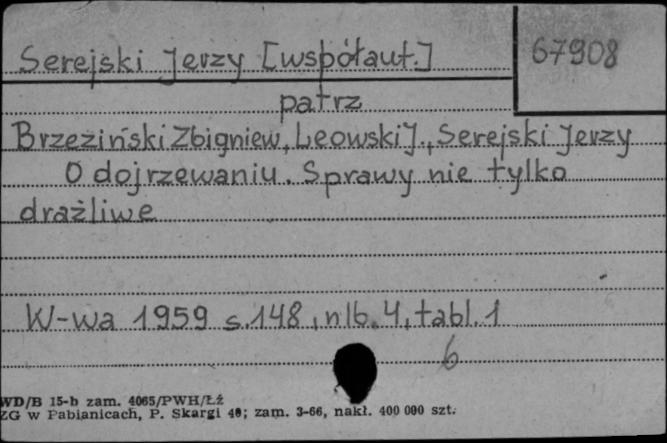 Serejski Jerzy [współaut.]
67908
patrz
Brzeziński Zbigniew, Leowski J., Serejski Jerzy
O dojrzewaniu. Sprawy nie tylko
drażliwe
W-wa 1959 s. 148, nlb. 4, tabl. 1
6
WD/B 15-b zam. 4065/PWH/Łż
ZG w Pabianicach, P. Skargi 40; zam. 3-66, nakł. 400 000 szt.